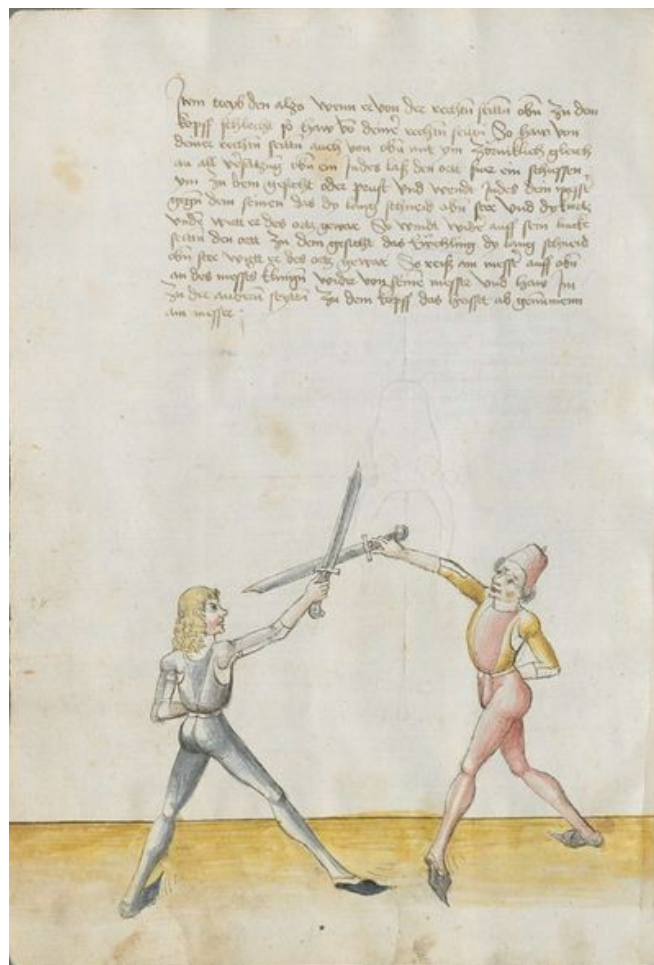 Item treyb den also wenn er von der rechtn seittn obn zu dem
kopff schlecht so haw vo deiner rechtn seittn So haw von
deiner rechtn seittn auch von obn mit ym zorniklich gleich
an all obn ein Indes laß den ort fuer ein schiessen
ym zu dem gesicht oder prust Und wendt Indes dein messer
gegn dem seinen das dy lang schneid obn stee Und dy kurtz
undn Wirt er des ortz gewar So windt wider auff sein lincke
seittn den ort zu dem gesicht das dy lang schneid
obn stee Wirt er des ortz gewar So reiß am messer auff obn
an des messers klingn wider von seine messer und haw Im
zu der anderen seyttn zu dem kopff das heisset ab genumenn
am messer